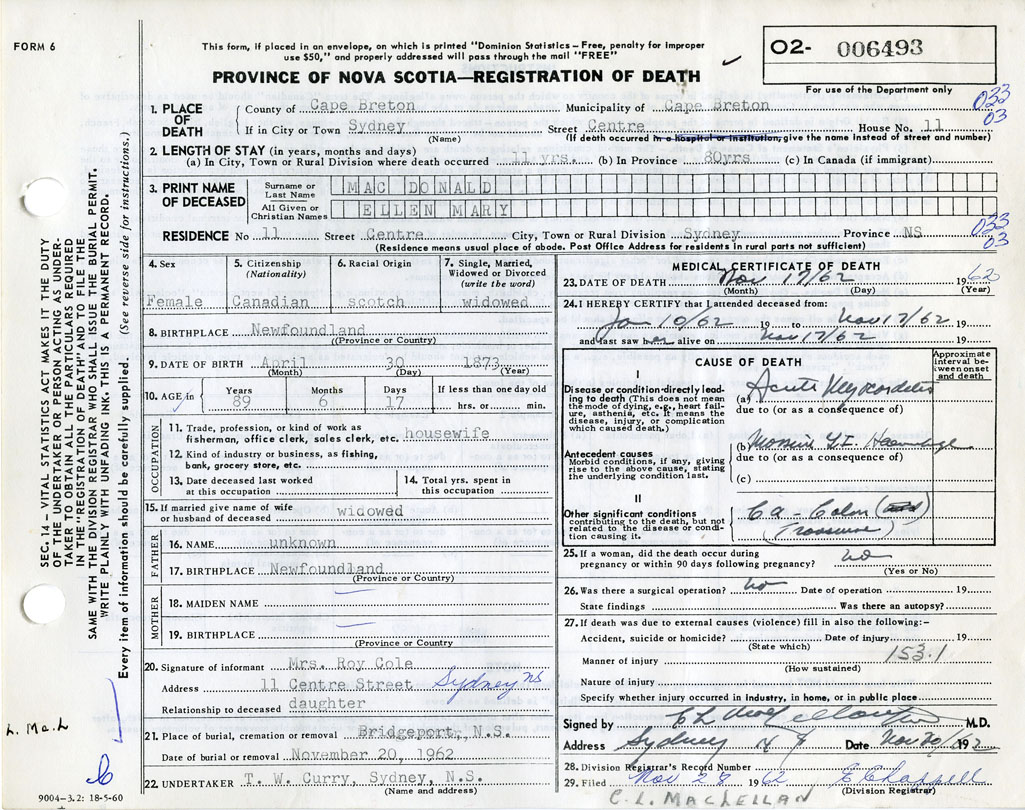 FORM 6
This form, if placed in an envelope, on which is printed "Dominion Statistics – Free, penalty for improper
use $50," and properly addressed will pass through the mail "FREE"
O2- 006493
PROVINCE OF NOVA SCOTIA—REGISTRATION OF DEATH
For use of the Department only
033
03
1. PLACE OF DEATH
County of Cape Breton Municipality of Cape Breton
If in City or Town Sydney Street Centre House No. 11
(Name) (If death occurred in a Hospital or Institution, give the name instead of street and number)
2. LENGTH OF STAY (in years, months and days)
(a) In City, Town or Rural Division where death occurred 11 yrs. (b) In Province 80yrs (c) In Canada (if immigrant)
3. PRINT NAME OF DECEASED
Surname or Last Name MAC DONALD
All Given or Christian Names ELLEN MARY
RESIDENCE No 11 Street Centre City, Town or Rural Division Sydney Province NS
033
03
(Residence means usual place of abode. Post Office Address for residents in rural parts not sufficient)
4. Sex
Female
5. Citizenship (Nationality)
Canadian
6. Racial Origin
scotch
7. Single, Married, Widowed or Divorced (write the word)
widowed
8. BIRTHPLACE Newfoundland
(Province or Country)
9. DATE OF BIRTH April 30 1873
(Month) (Day) (Year)
10. AGE in Years 89 Months 6 Days 17 If less than one day old
hrs. or min.
OCCUPATION
11. Trade, profession, or kind of work as
fisherman, office clerk, sales clerk, etc. housewife
12. Kind of industry or business, as fishing,
bank, grocery store, etc.
13. Date deceased last worked
at this occupation
14. Total yrs. spent in
this occupation
15. If married give name of wife
or husband of deceased widowed
FATHER
16. NAME unknown
17. BIRTHPLACE Newfoundland
(Province or Country)
MOTHER
18. MAIDEN NAME
19. BIRTHPLACE
(Province or Country)
20. Signature of informant Mrs. Roy Cole
Address 11 Centre Street Sydney NS
Relationship to deceased daughter
21. Place of burial, cremation or removal Bridgeport, N.S.
Date of burial or removal November 20, 1962
22. UNDERTAKER T. W. Curry, Sydney, N.S.
(Name and address)
MEDICAL CERTIFICATE OF DEATH
23. DATE OF DEATH Nov 17/62 1962
(Month) (Day) (Year)
24. I HEREBY CERTIFY that I attended deceased from:
Jan 10/62 19 to Nov 17/62 19
and last saw her alive on Nov 17/62 19
CAUSE OF DEATH
Approximate interval between onset and death
I
Disease or condition directly leading
to death (This does not mean
the mode of dying, e.g., heart failure,
asthenia, etc. It means the
disease, injury, or complication
which caused death.)
(a) Acute Myocarditis
due to (or as a consequence of)
Antecedent causes
Morbid conditions, if any, giving
rise to the above cause, stating
the underlying condition last.
(b) Massive G.I. Hemorrhage
due to (or as a consequence of)
(c)
II
Other significant conditions
contributing to the death, but not
related to the disease or condition
causing it.
Ca - Colon
25. If a woman, did the death occur during
pregnancy or within 90 days following pregnancy? no
(Yes or No)
26. Was there a surgical operation? no Date of operation 19
State findings Was there an autopsy?
27. If death was due to external causes (violence) fill in also the following:-
Accident, suicide or homicide? Date of injury 19
(State which)
153.1
Manner of injury
(How sustained)
Nature of injury
Specify whether injury occurred in industry, in home, or in public place
Signed by M.D.
Address Sydney N S Date Nov 20/62 19
28. Division Registrar's Record Number
29. Filed Nov 28 1962 E Chappell
(Division Registrar)
C. L. MACLELLAN
SEC. 14 – VITAL STATISTICS ACT MAKES IT THE DUTY
OF THE UNDERTAKER OR PERSON ACTING AS UNDERTAKER
TO OBTAIN ALL THE PARTICULARS REQUIRED
IN THE "REGISTRATION OF DEATH" AND TO FILE THE
SAME WITH THE DIVISION REGISTRAR WHO SHALL ISSUE THE BURIAL PERMIT.
WRITE PLAINLY WITH UNFADING INK. THIS IS A PERMANENT RECORD.
Every item of information should be carefully supplied. (See reverse side for instructions.)
L. Mc.L
9004-3.2: 18-5-60